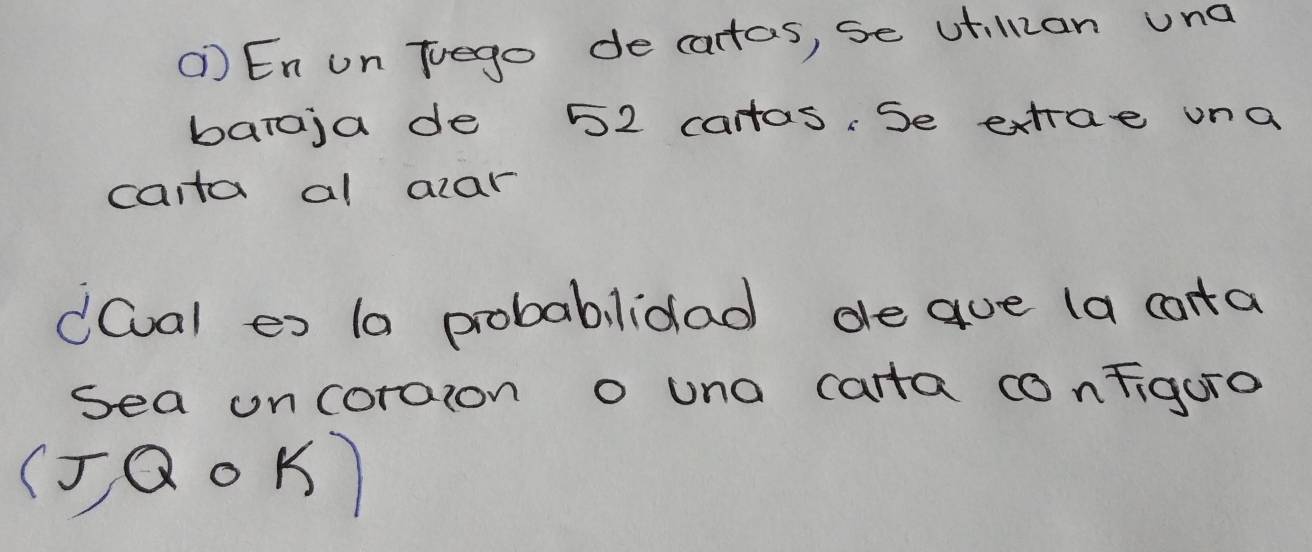 a) En un Juego de cartas, se utilizan una
baraja de 52 cartas. Se extrae una
carta al azar
¿Cual es la probabilidad de que la carta
sea un corazon o una carta con figura
(J, Q o K)